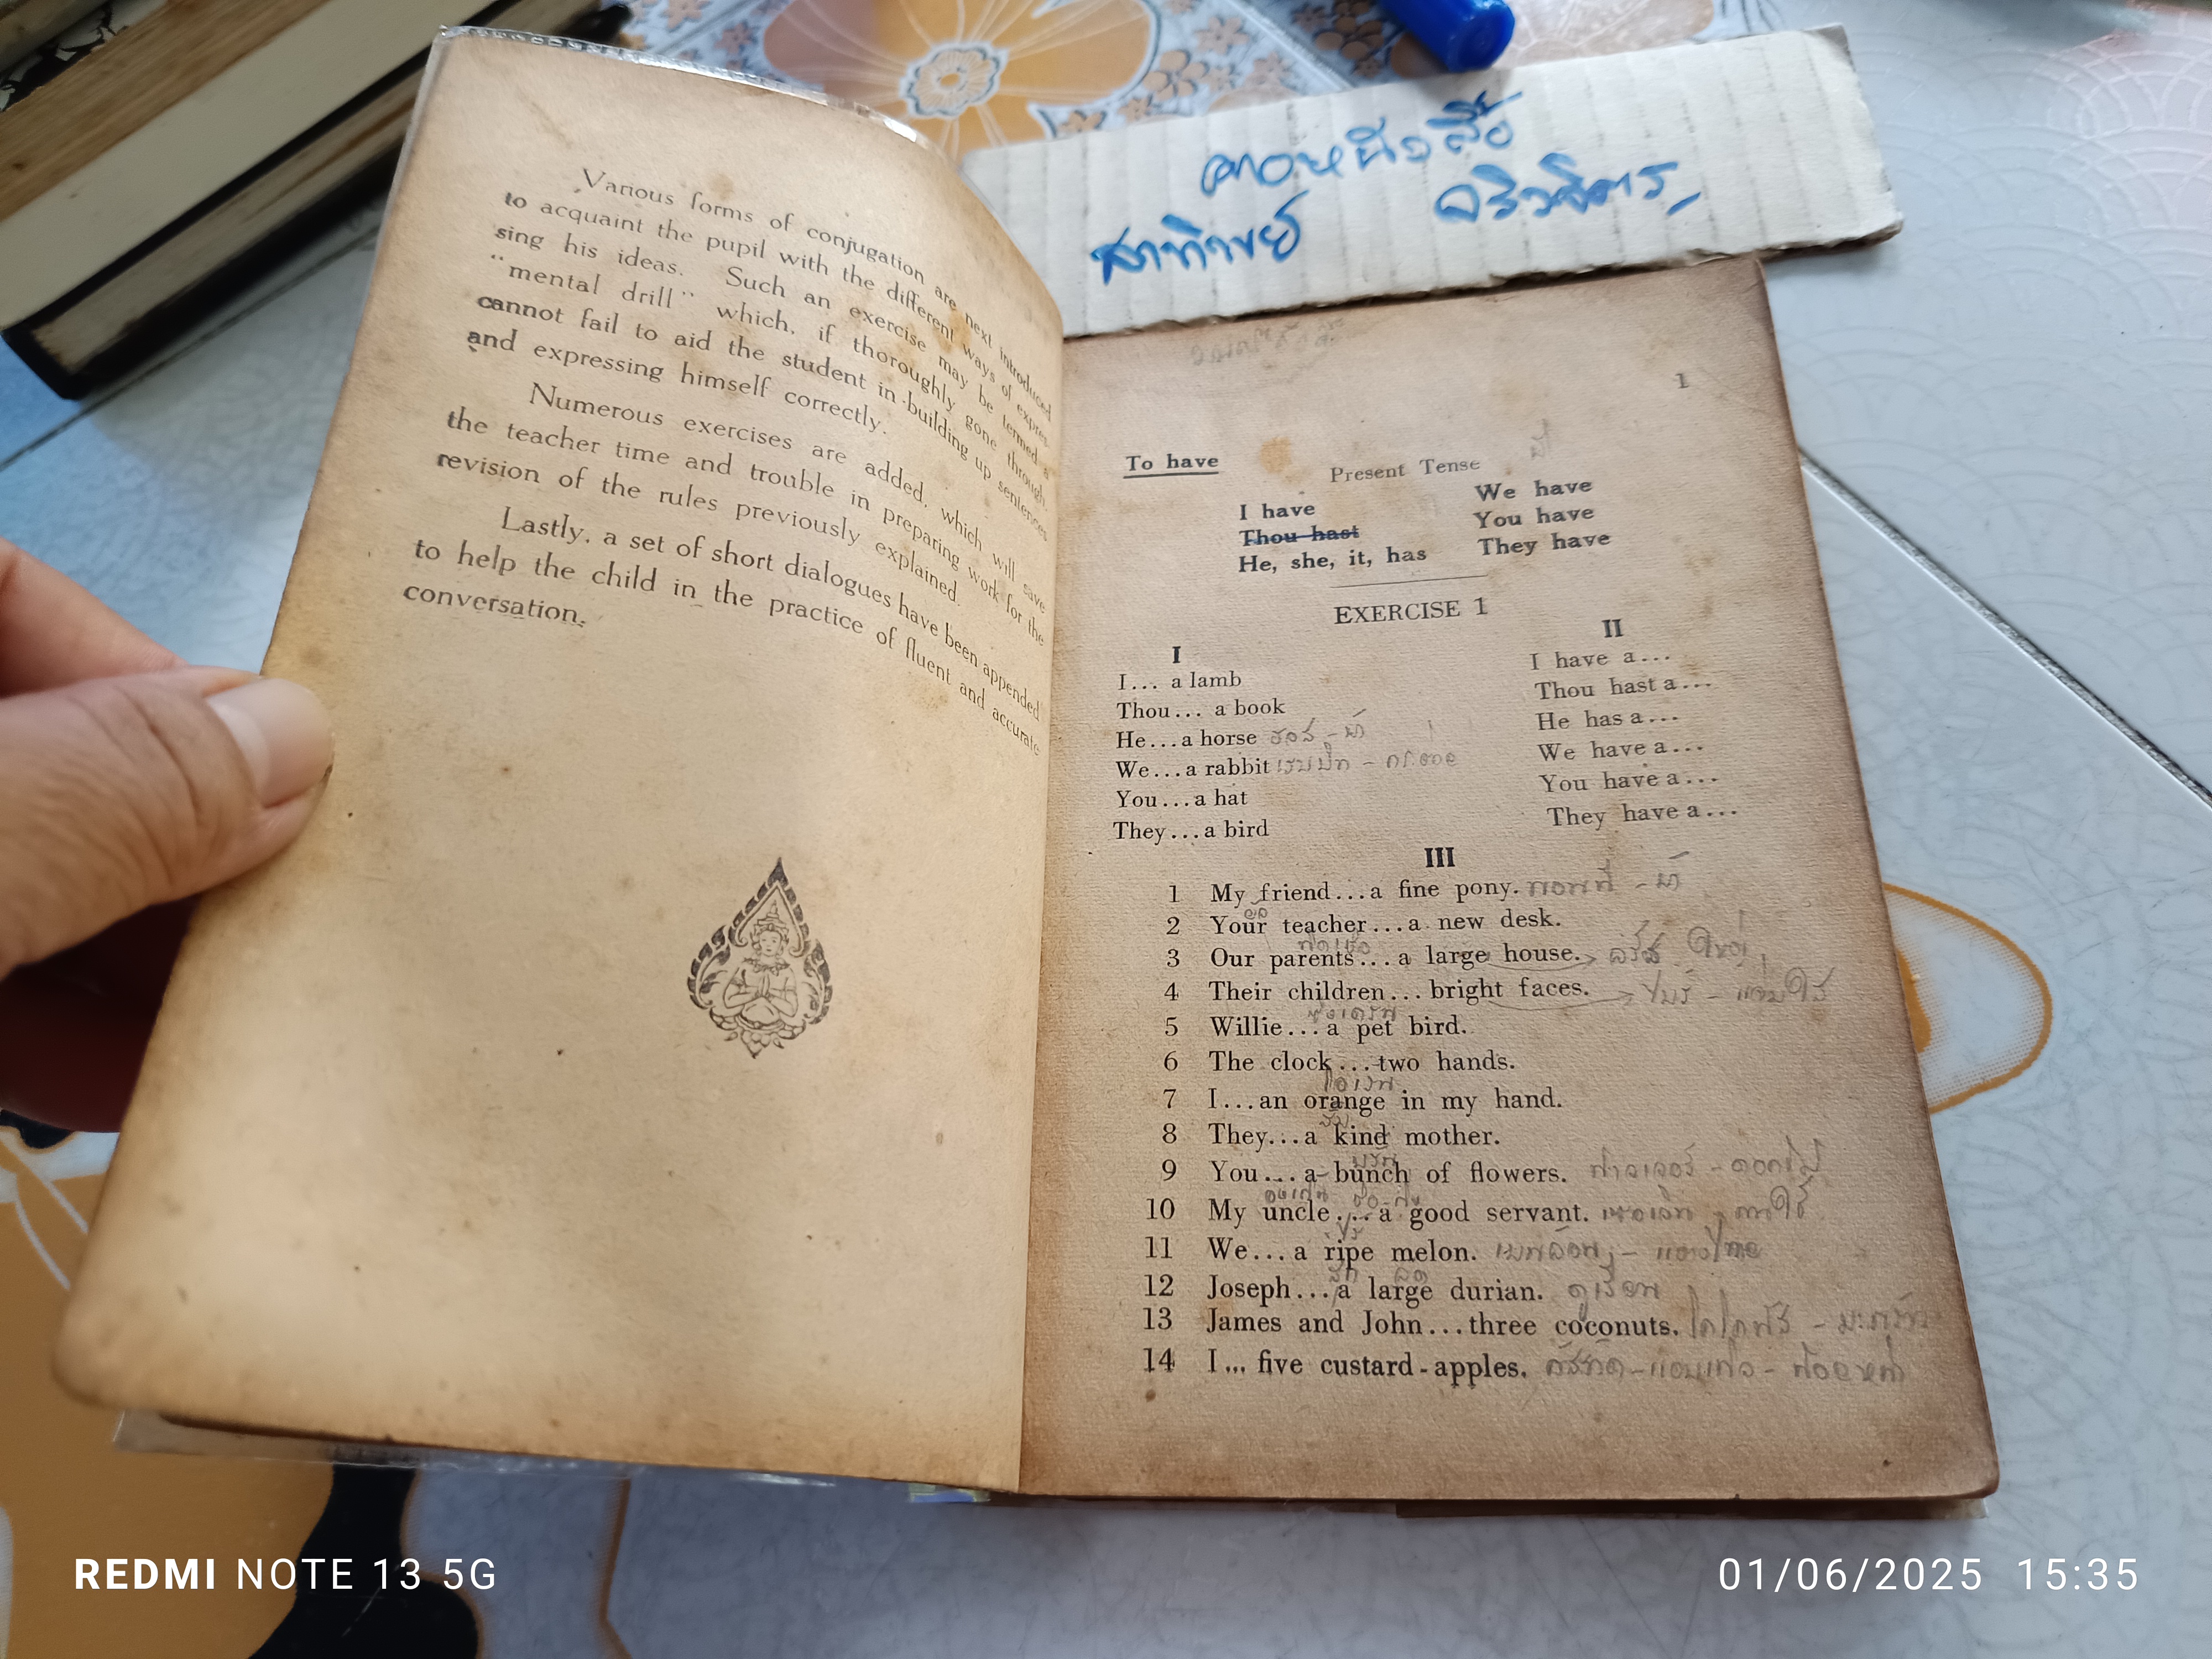 ถาวรหนังสือ
สาทิพย์ อริวจิตร
Various forms of conjugation are next introduced
to acquaint the pupil with the different ways of expres-
sing his ideas. Such an exercise may be termed a
"mental drill" which, if thoroughly gone through,
cannot fail to aid the student in building up sentences
and expressing himself correctly.
Numerous exercises are added, which will save
the teacher time and trouble in preparing work for the
revision of the rules previously explained.
Lastly, a set of short dialogues have been appended
to help the child in the practice of fluent and accurate
conversation.
1
To have
Present Tense
I have We have
Thou hast You have
He, she, it, has They have
EXERCISE 1
I
I... a lamb
Thou... a book
He...a horse ฮอส - ม้า
We...a rabbit แรบบิท - กระต่าย
You...a hat
They...a bird
II
I have a...
Thou hast a...
He has a...
We have a...
You have a...
They have a...
III
1 My friend...a fine pony. - ม้า
2 Your teacher...a new desk.
3 Our parents...a large house. ใหญ่
4 Their children...bright faces. - แจ่มใส
5 Willie...a pet bird.
6 The clock...two hands.
7 I...an orange in my hand.
8 They...a kind mother.
9 You...a bunch of flowers. - ดอกไม้
10 My uncle...a good servant. - คนใช้
11 We...a ripe melon. - แตงไทย
12 Joseph...a large durian. ดูเรียน
13 James and John...three coconuts. - มะพร้าว
14 I... five custard-apples. คัสทัด-แอบเปิล - น้อยหน่า
REDMI NOTE 13 5G
01/06/2025 15:35